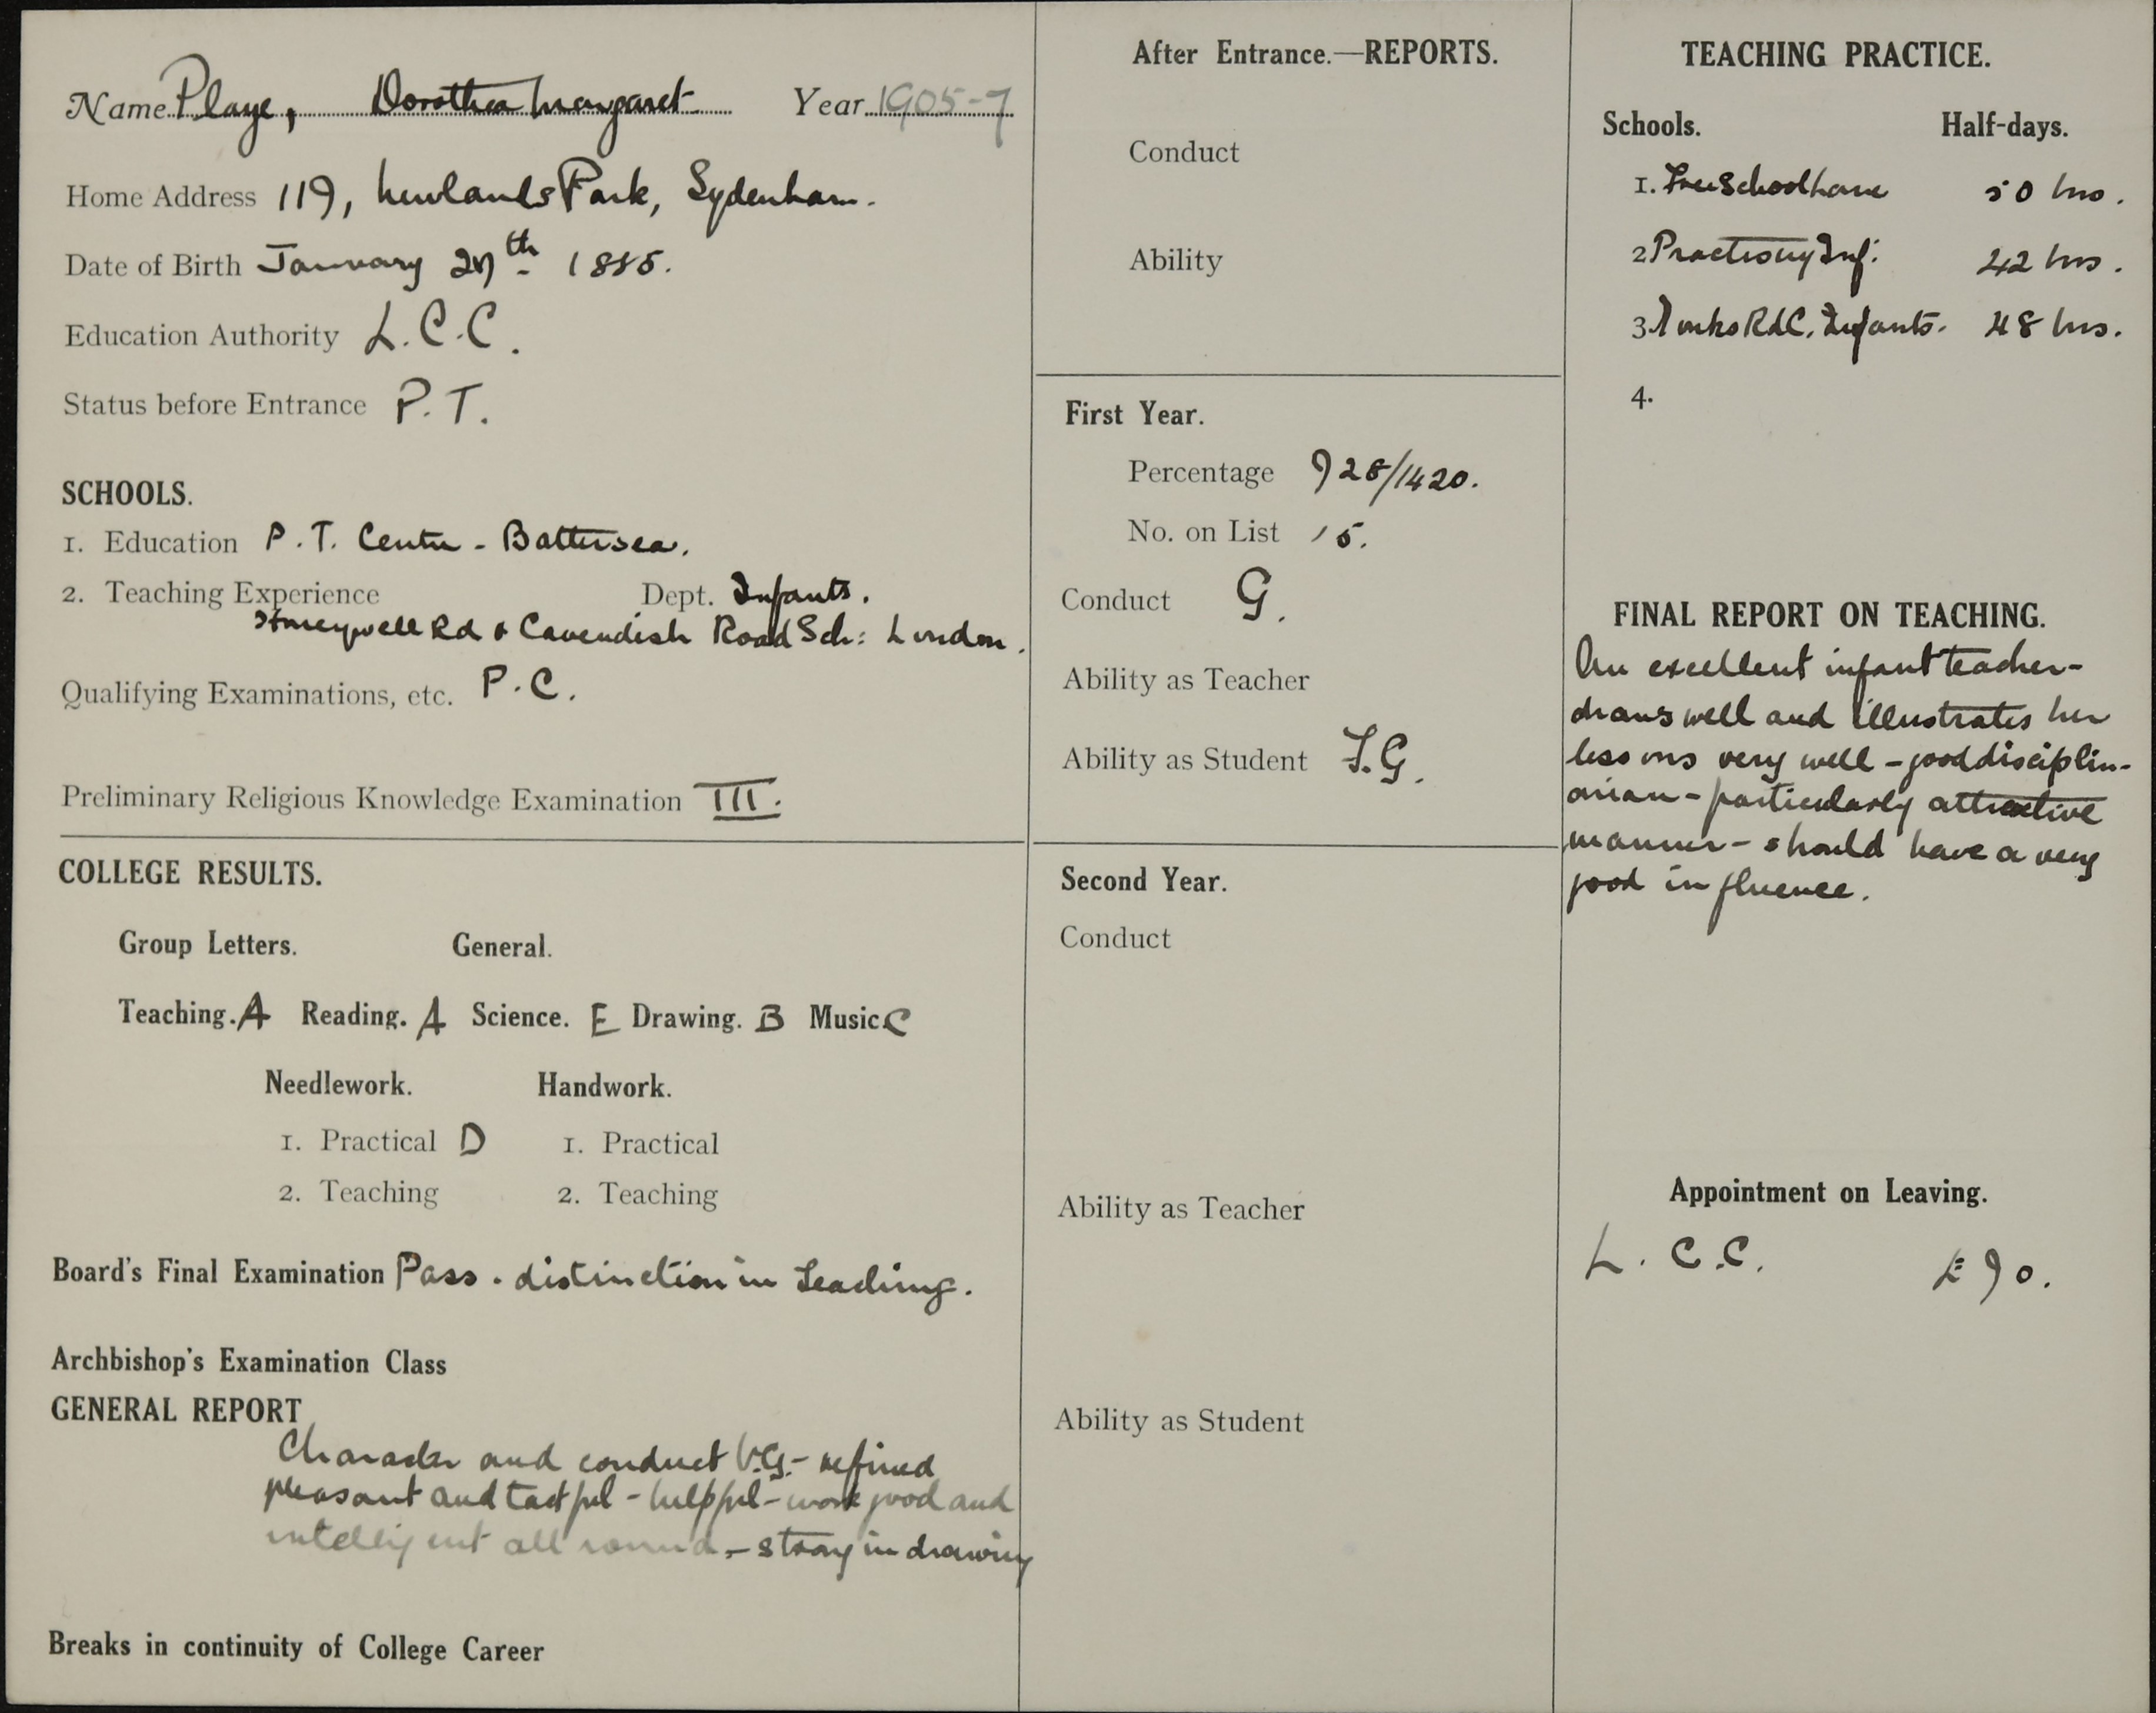 Name Playe, Dorothea Margaret Year 1905-7
Home Address 119, Newlands Park, Sydenham.
Date of Birth January 27th 1885.
Education Authority L.C.C.
Status before Entrance P.T.
SCHOOLS.
1. Education P.T. Centre - Battersea.
2. Teaching Experience Dept. Infants.
Honeywell Rd & Cavendish Road Sch: London.
Qualifying Examinations, etc. P.C.
Preliminary Religious Knowledge Examination III.
COLLEGE RESULTS.
Group Letters. General.
Teaching. A Reading. A Science. E Drawing. B Music C
Needlework. Handwork.
1. Practical D 1. Practical
2. Teaching 2. Teaching
Board's Final Examination Pass. distinction in Teaching.
Archbishop's Examination Class
GENERAL REPORT
Character and conduct V.G. - refined
pleasant and tactful - helpful - work good and
intelligent all round - strong in drawing
Breaks in continuity of College Career
After Entrance.—REPORTS.
Conduct
Ability
First Year.
Percentage 928/1420.
No. on List 15.
Conduct G.
Ability as Teacher
Ability as Student F.G.
Second Year.
Conduct
Ability as Teacher
Ability as Student
TEACHING PRACTICE.
Schools. Half-days.
1. Free School Lane 50 hrs.
2 Practising Inf: 42 hrs.
3 Monks Rd C. Infants. 48 hrs.
4.
FINAL REPORT ON TEACHING.
An excellent infant teacher -
draws well and illustrates her
lessons very well - good disciplin-
arian - particularly attractive
manner - should have a very
good influence.
Appointment on Leaving.
L.C.C. £90.